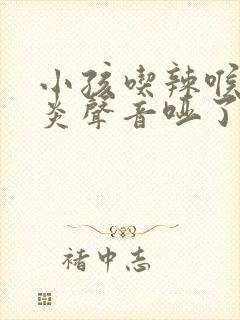 小孩喫辣喉
炎聲音啞了
褚中志